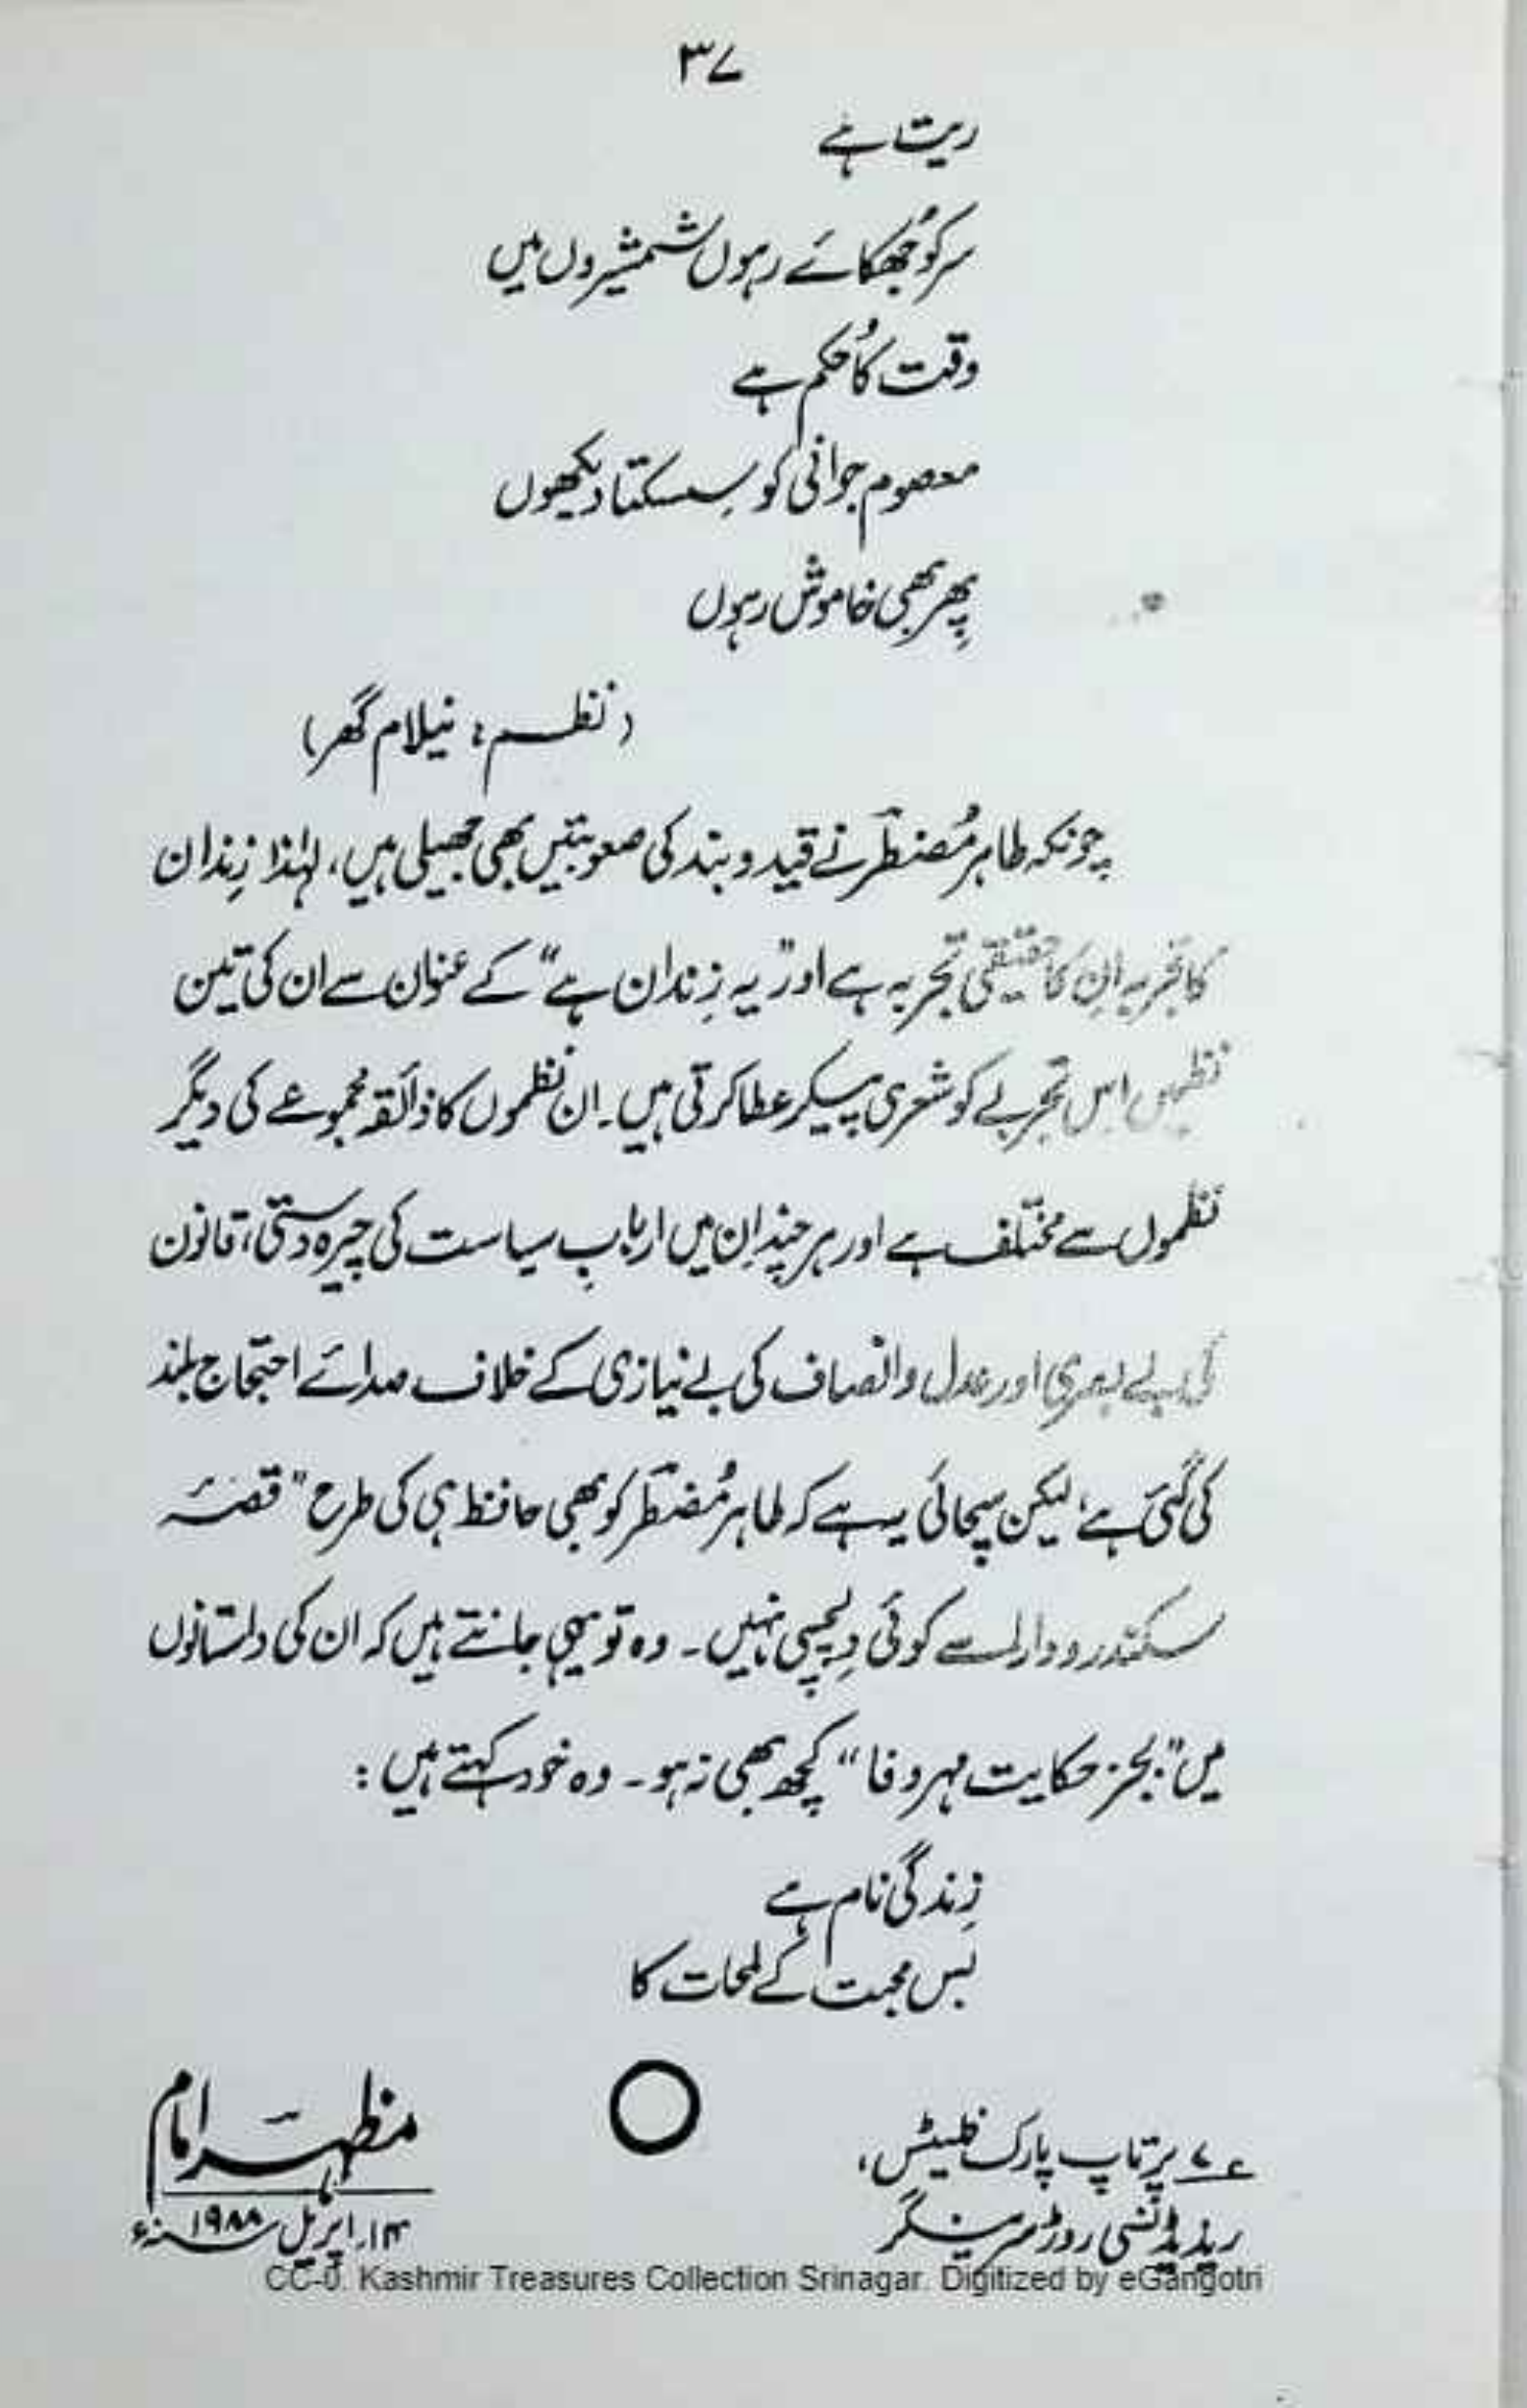 ۳۷
ریت ہے
سر کو جُھکائے رہوں شمشیروں میں
وقت کا حُکم ہے
معصوم جوانی کو سِسکتا دیکھوں
پِھر بھی خاموش رہوں
(نظم: نیلام گھر)
چونکہ طاہر مُضطرؔ نے قید و بند کی صعوبتیں بھی جھیلی ہیں، لہٰذا زِندان
کا تجربہ اِن کا حقیقی تجربہ ہے اور "یہ زِندان ہے" کے عنوان سے ان کی تین
نظمیں اس تجربے کو شعری پیکر عطا کرتی ہیں۔ ان نظموں کا ذائقہ مجموعے کی دیگر
نظموں سے مختلف ہے اور ہر چند اِن میں اربابِ سیاست کی چیرہ دستی، قانون
کی بے بصری اور عدل و انصاف کی بے نیازی کے خلاف صدائے احتجاج بلند
کی گئی ہے، لیکن سچائی یہ ہے کہ طاہر مُضطرؔ کو بھی حافظ ہی کی طرح "قصۂ
سکندر و دارا سے کوئی دِلچسپی نہیں۔ وہ تو یہی جانتے ہیں کہ ان کی داستانوں
میں "بجز حکایت مہر و فا" کچھ بھی نہ ہو۔ وہ خود کہتے ہیں:
زِندگی نام ہے
بس محبت کے لمحات کا
مظہر امام
۷ پرتاپ پارک فلیٹس،
۱۴؍ اپریل ۱۹۸۸ء
ریذیڈنسی روڈ سرینگر
CC-0. Kashmir Treasures Collection Srinagar. Digitized by eGangotri